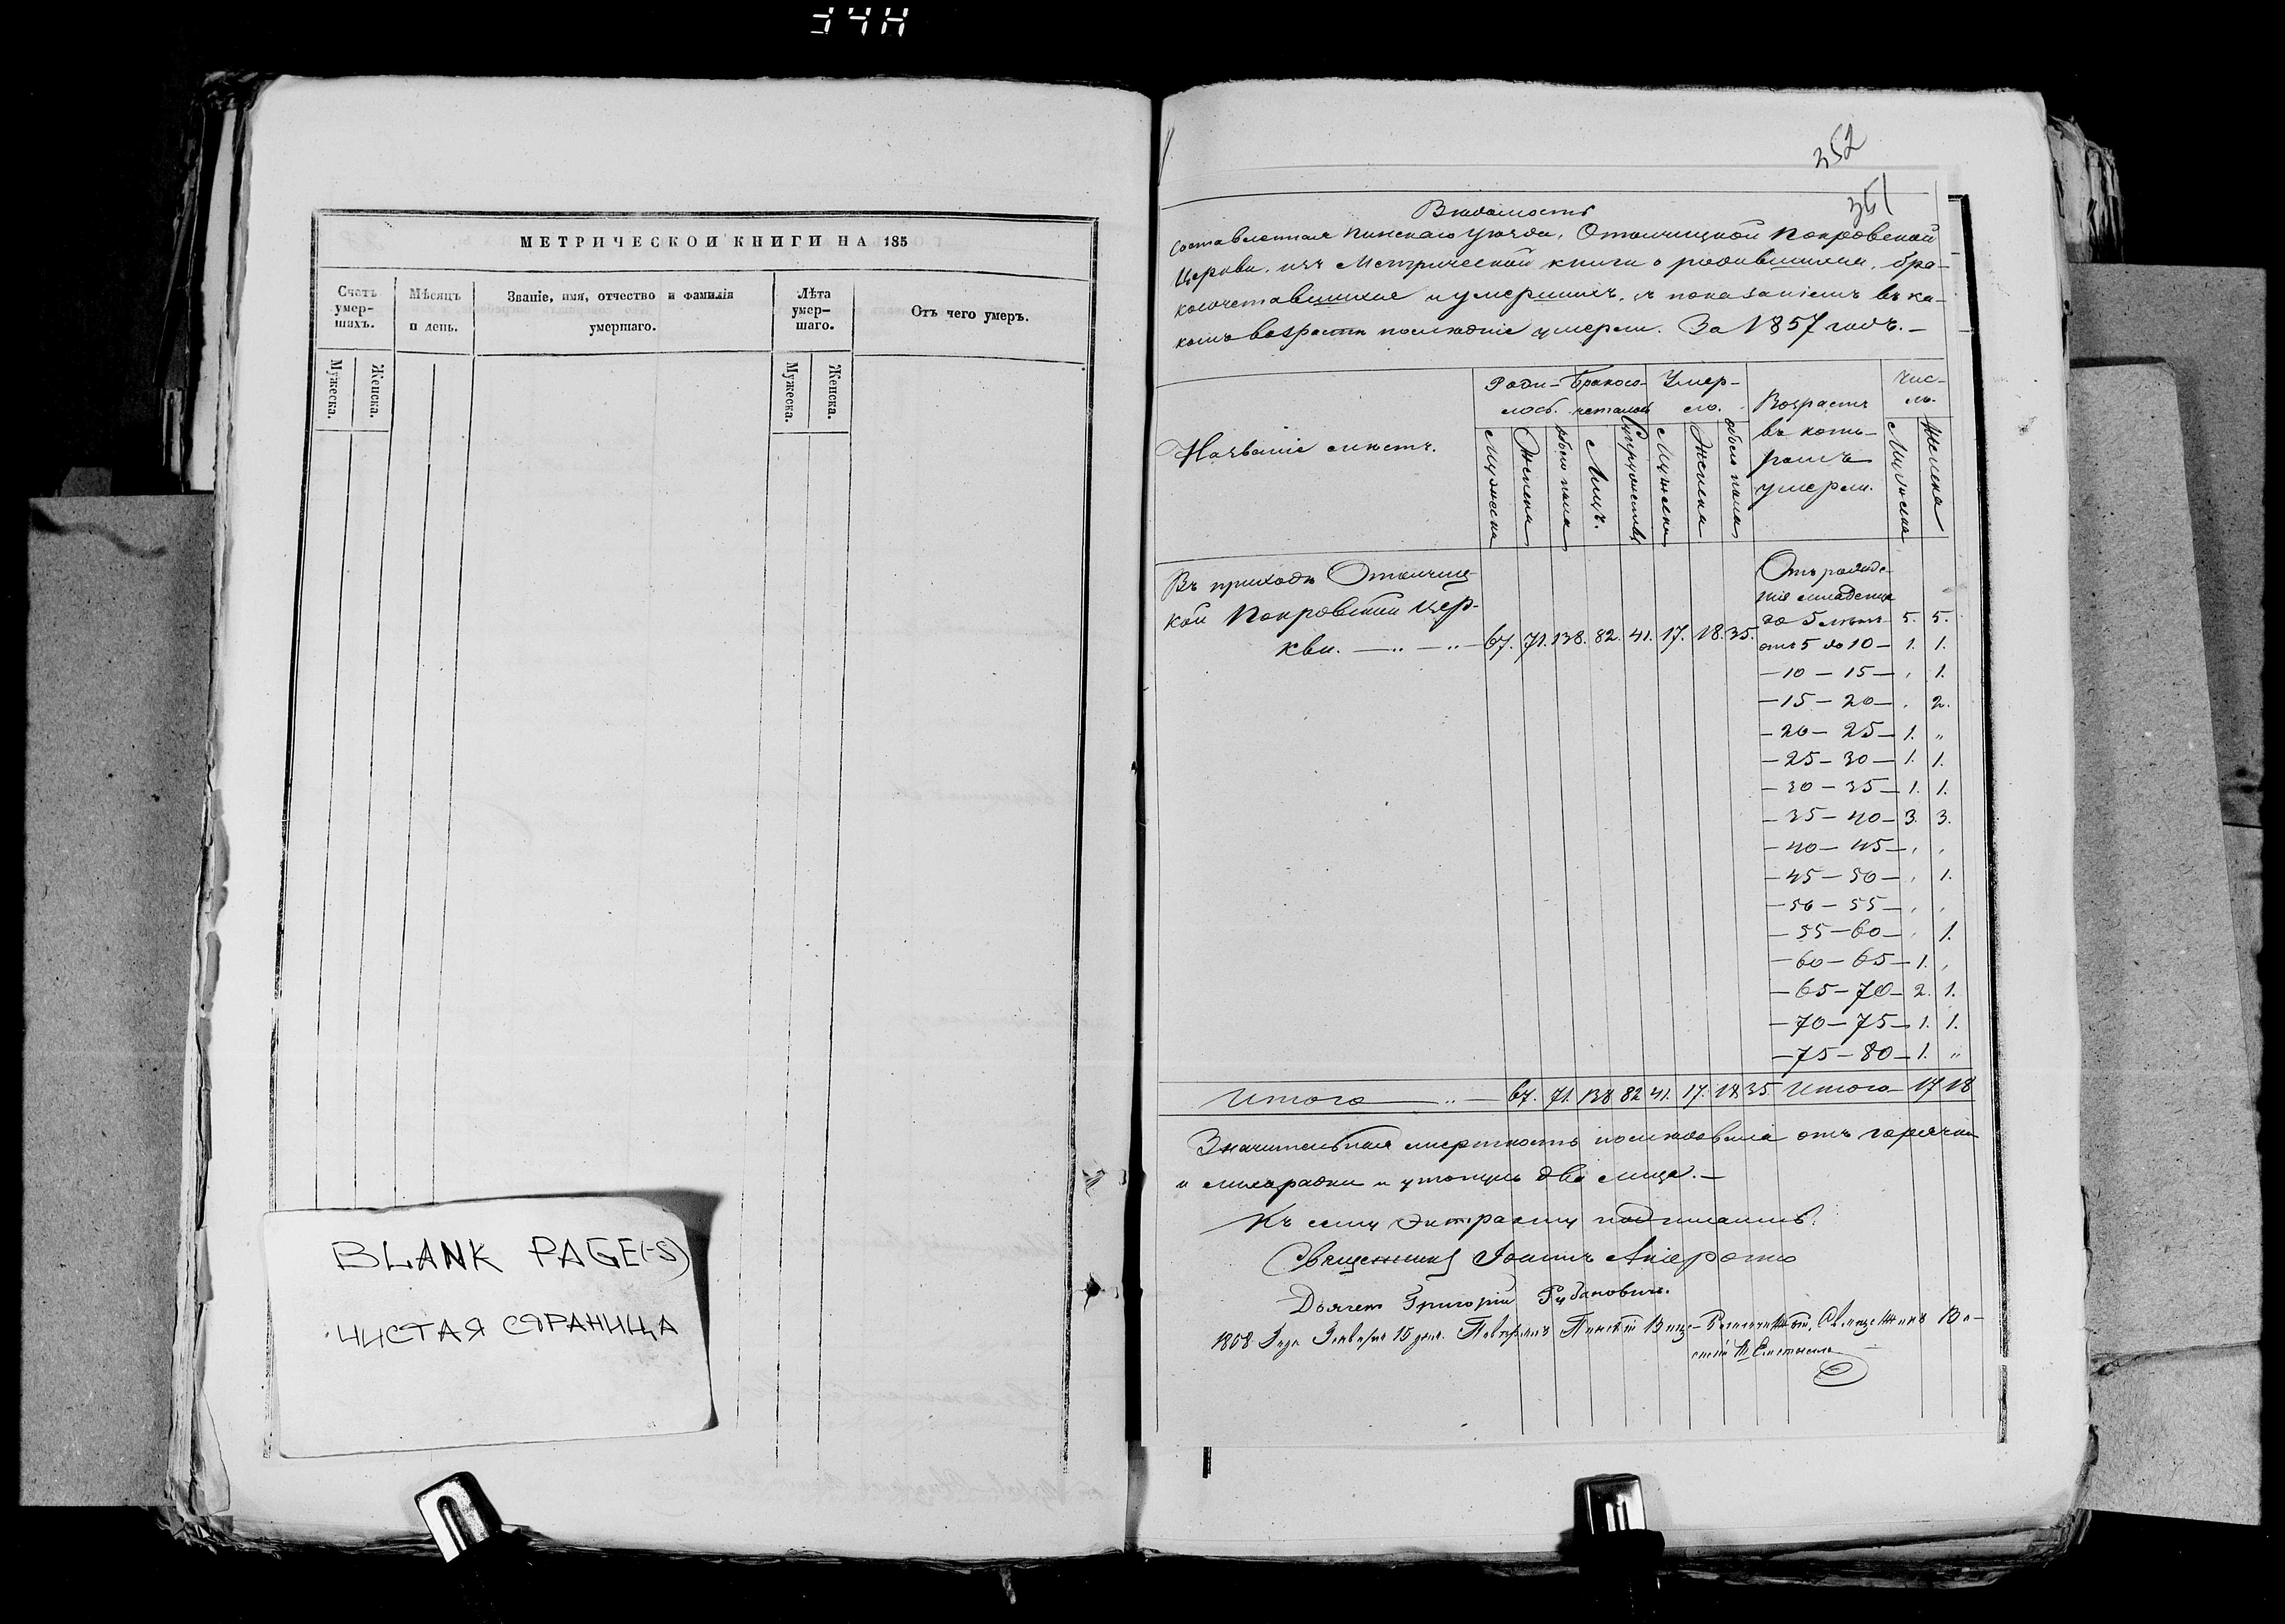 МЕТРИЧЕСКОЙ КНИГИ НА 185
Счетъ умер-шихъ.
Мѣсяцъ и день.
Званіе, имя, отчество и фамилія умершаго.
Лѣта умер-шаго.
Отъ чего умеръ.
Мужеска.
Женска.
Мужеска.
Женска.
BLANK PAGE(-S)
ЧИСТАЯ СТРАНИЦА
352
351
Вѣдомость
составленная Пинскаго уѣзда, Отолчицкой Покровской
Церкви, изъ Метрической книги о родившихся, бра-
косочетавшихся и умершихъ, съ показаніемъ въ ка-
комъ возрастѣ послѣдніе умерли. За 1857 годъ.—
Названіе мѣстъ.
Роди-лось.
Бракосо-четалось
Умер-ло.
Возрастъ въ кото-ромъ умерли.
Чис-ло.
Мужеска
Женска
обоего пола
Лицъ.
Супружествъ
Мужеска
Женска
обоего пола
Мужеска
Женска
Въ приходѣ Отолчиц
кой Покровской Цер-
кви. — „ — „ — 67. 71. 138. 82. 41. 17. 18. 35.
Отъ рожде-
нія младенца
до 5 лѣтъ 5. 5.
отъ 5 до 10 — 1. 1.
— 10 — 15 — , 1.
— 15 — 20 — , 2.
— 20 — 25 — 1. „
— 25 — 30 — 1. 1.
— 30 — 35 — 1. 1.
— 35 — 40 — 3. 3.
— 40 — 45 — , ,
— 45 — 50 — , 1.
— 50 — 55 — , ,
— 55 — 60 — , 1.
— 60 — 65 — 1. ,
— 65 — 70 — 2. 1.
— 70 — 75 — 1. 1.
— 75 — 80 — 1. „
Итого — „ — 67. 71. 138 82 41. 17. 18 35 Итого 17 18
Значительная смертность послѣдовала отъ горячки
и лихорадки и утонули два лица.—
Къ сему экстракту подписались:
Священникъ Іоаннъ
Дьячекъ Григорій Рубановичъ.
1858 Года Января 15 дня. Повѣрялъ Пинскій Вице-Благочинный, Священникъ Ва-